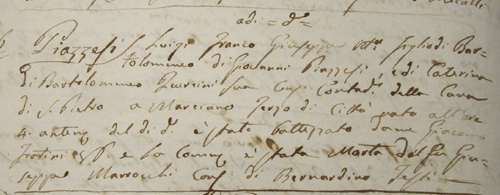 adi = d.º =
Piazzesi Luigi Franco Giuseppe figlio di Bar-
tolommeo di Giovanni Piazzesi, e di Caterina
di Bartolommeo sua Cons. Contad. della Cura
di S. Pietro a Marciano Terzo di Città nato all'ore
4. antim. del dì d.º è stato battezzato dame Giacomo
e la Comre è stata Marta del fu Giu-
seppe Marrocchi Cons. di Bernardino